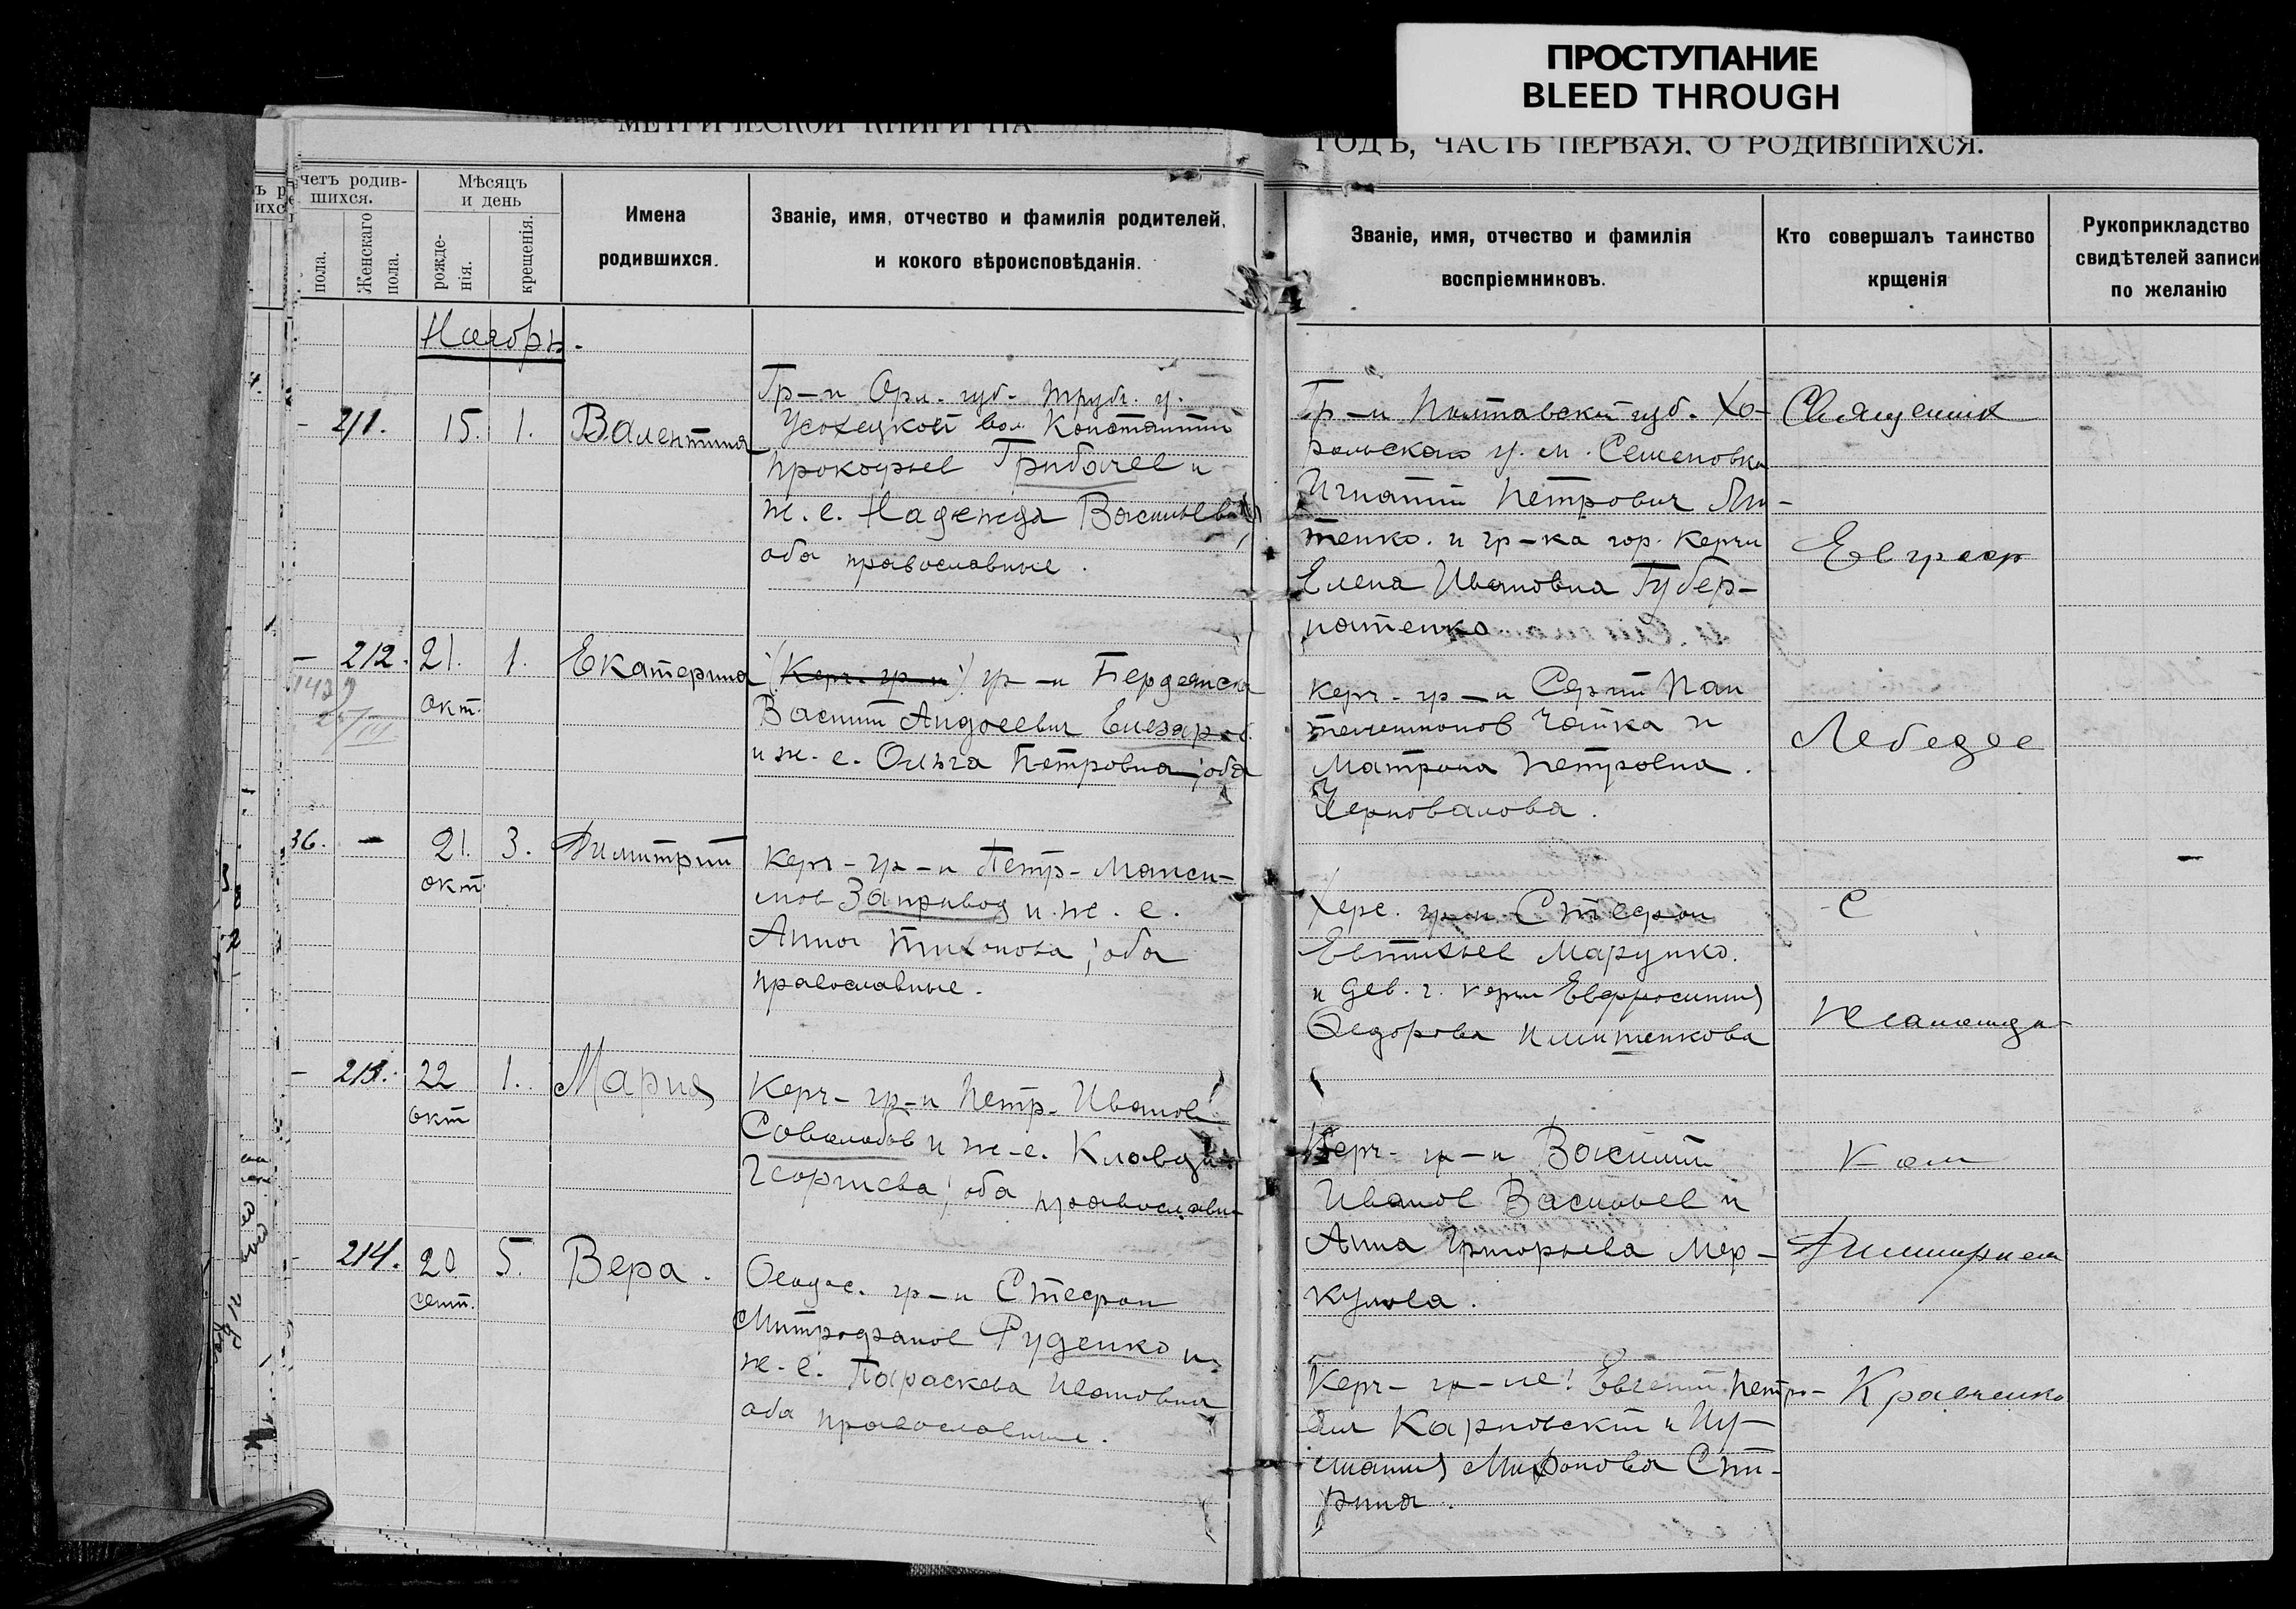 ПРОСТУПАНИЕ
BLEED THROUGH
МЕТРИЧЕСКОЙ КНИГИ НА
ГОДЪ, ЧАСТЬ ПЕРВАЯ, О РОДИВШИХСЯ.
четъ родив-
шихся.
пола.
Женскаго
пола.
Мѣсяцъ
и день
рожде-
нія.
крещенія.
Имена
родившихся.
Званіе, имя, отчество и фамилія родителей,
и кокого вѣроисповѣданія.
Званіе, имя, отчество и фамилія
воспріемниковъ.
Кто совершалъ таинство
крщенія
Рукоприкладство
свидѣтелей записи
по желанію
Ноябрь.
- 211. 15. 1. Валентина
Гр-н Орл. губ. Трубч. у.
Усохецкой вол. Константин
Прокофьев Грибачев и
ж. е. Надежда Васильева
оба православные.
Гр-н Полтавской губ. Хо-
рольскаго у. м. Семеновка
Игнатий Петрович
тенко. и гр-ка гор. Керчи
Елена Ивановна Губер-
натенко
Священник
Евграф
- 212. 21. 1. Екатерина
окт.
(Керч. гр-н) гр-н Бердянска
Василий Андреевич Елезаров
и ж. е. Ольга Петровна; оба
Керч-гр-н Сергий Пан
телеимонов Чайка и
Матрона Петровна
Черновалова.
Лебедев
36. - 21. 3. Димитрий
окт.
Керч-гр-н Петр Макси-
мов Запривод и ж. е.
Анна Тихонова; оба
православные.
Херс. гр-н Стефан
Евтихиев Марунко.
и дев. г. Керчи Евфросиния
Федорова
С
псаломщи-
- 213. 22 1. Мария
окт
Керч-гр-н Петр Иванов
и ж-е. Клавдия
Георгиева; оба православн
Керч-гр-н Василий
Иванов Васильев и
Анна Григорьева Мер-
кулова.
ком
Димитрием
- 214. 20 5. Вера.
сент.
Феодос. гр-н Стефан
Митрофанов Руденко и
ж-е. Параскева Ивановна
оба православные.
Керч-гр-не: Евгений Петро-
вич Карновский и Иу-
лиания Миронова Спи-
рина.
Кравченко